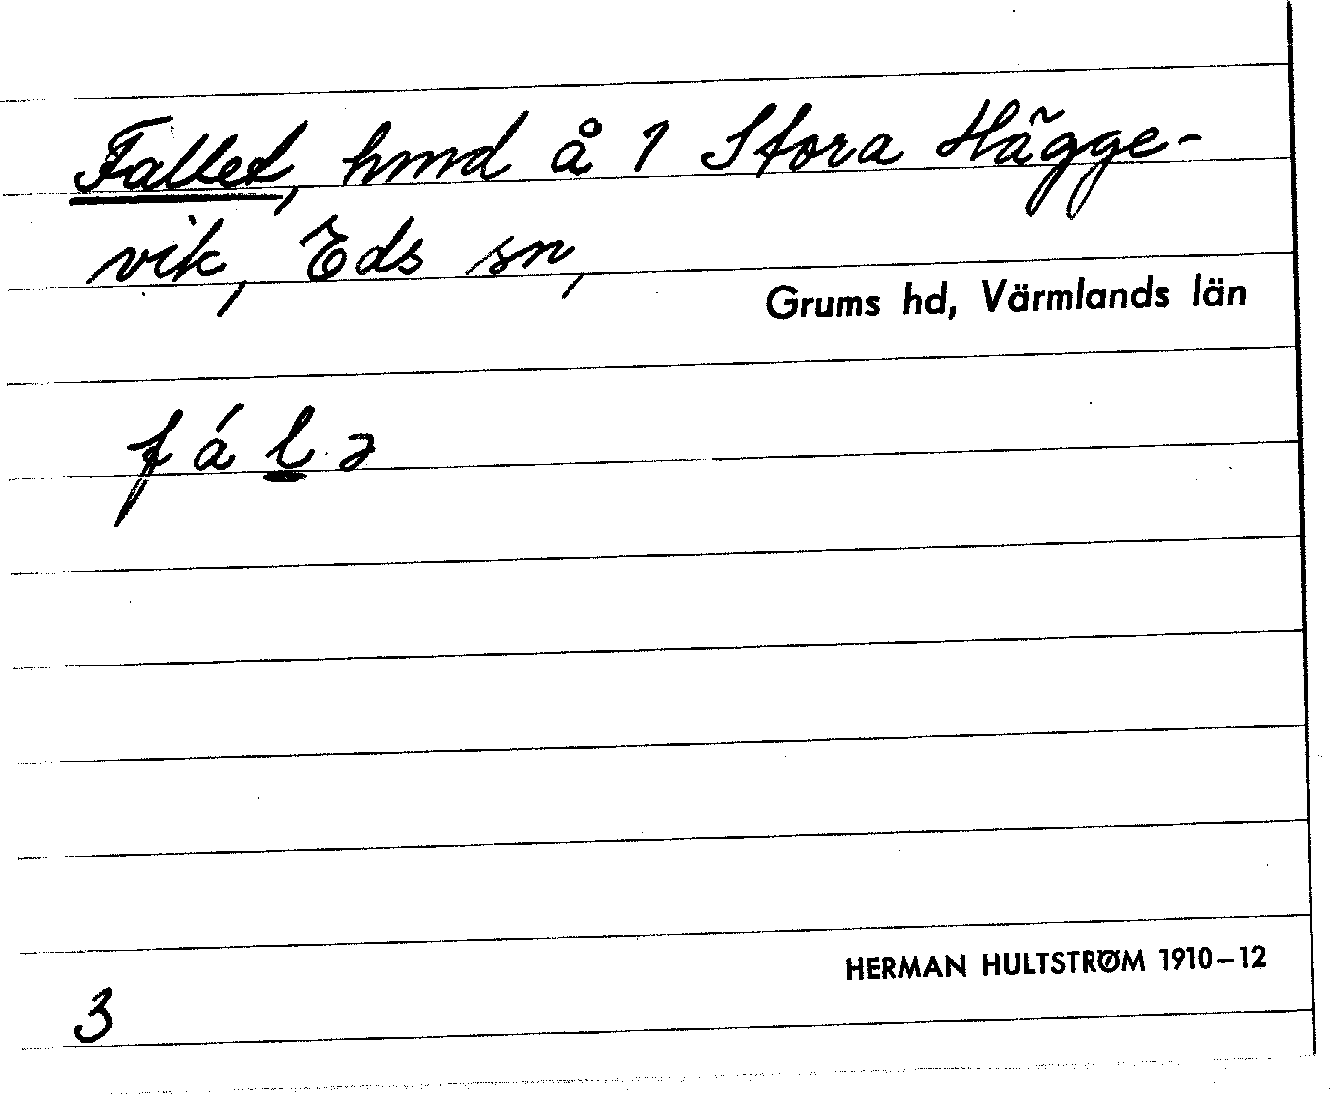 Fallet, hmd å 1 Stora Hägge-
vik, Eds sn,
Grums hd, Värmlands län
fál̲ə
HERMAN HULTSTRØM 1910–12
3